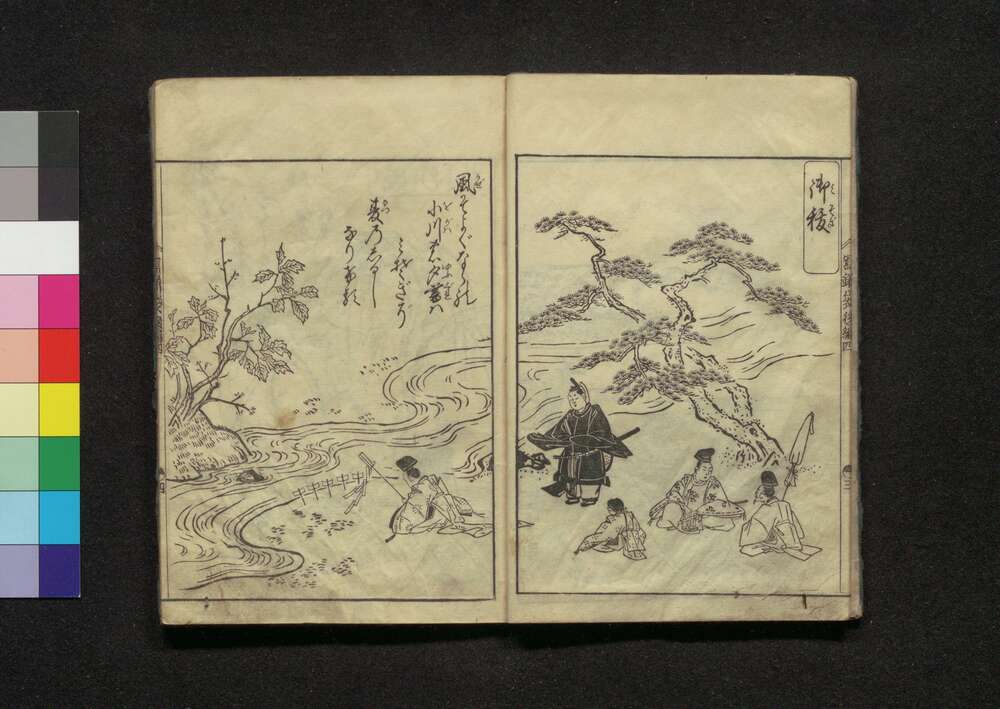 御秡
風そよぐならの
小川の夕暮ハ
みそぎぞ
夏のしるし
なりける